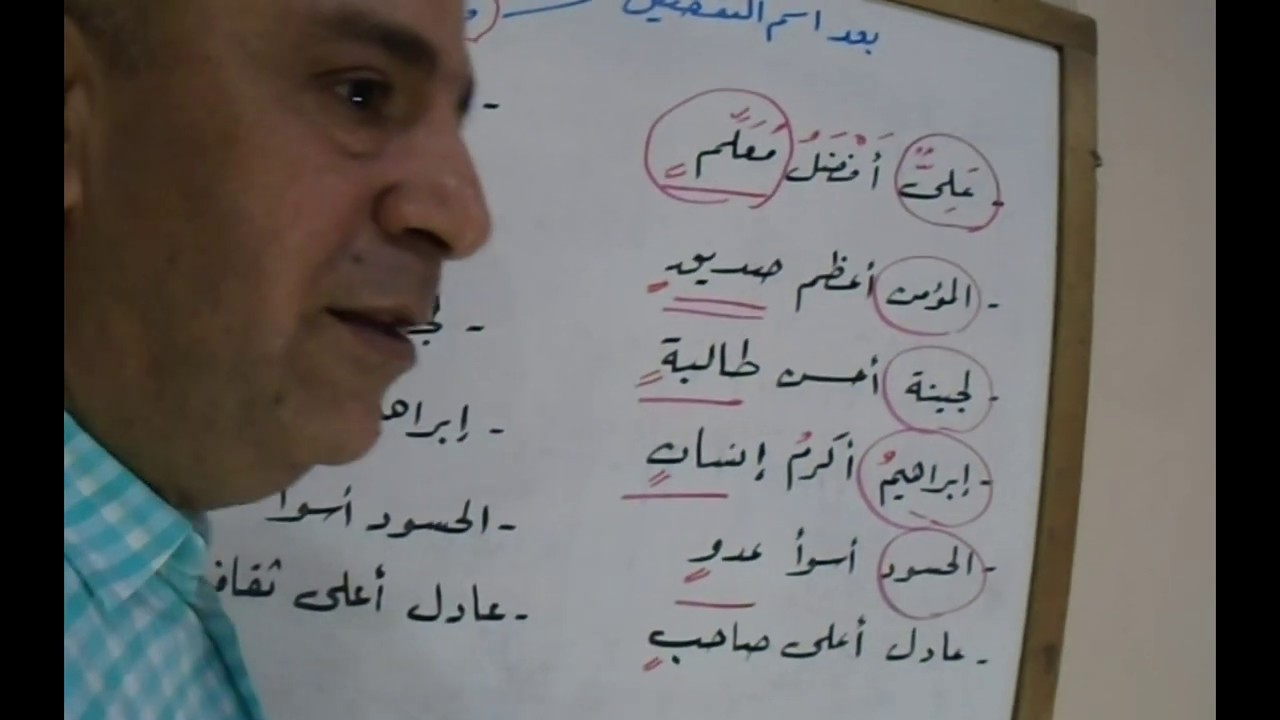 بعد اسم التفضيل
- عَلِىٌّ أَفْضَلُ مُعَلِّمٍ
- المؤمن أعظم صديقٍ
- لجينة أحسن طالبةٍ
- إبراهيمُ أكرمُ إنسانٍ
- الحسود أسوأ عدوٍ
- عادل أعلى صاحبٍ
- الحسود أسوأ
- عادل أعلى